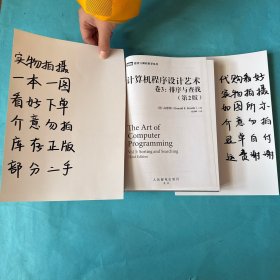 实物拍摄
一本一图
看好下单
介意勿拍
库存正版
部分二手
计算机程序设计艺术
卷3:排序与查找
(第2版)
The Art of
Computer
Programming
Vol 3: Sorting and Searching
Second Edition
人民邮电出版社
代购看好
实物拍摄
如图所示
介意勿拍
至单自付
运费谢谢